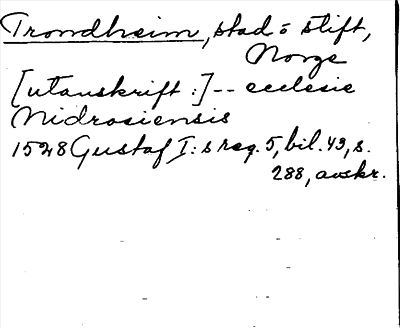 Trondheim, stad o stift,
Norge
[utanskrift:] -- ecclesie
Nidrosiensis
1528 Gustaf I:s reg. 5, bil. 43, s.
288, avskr.